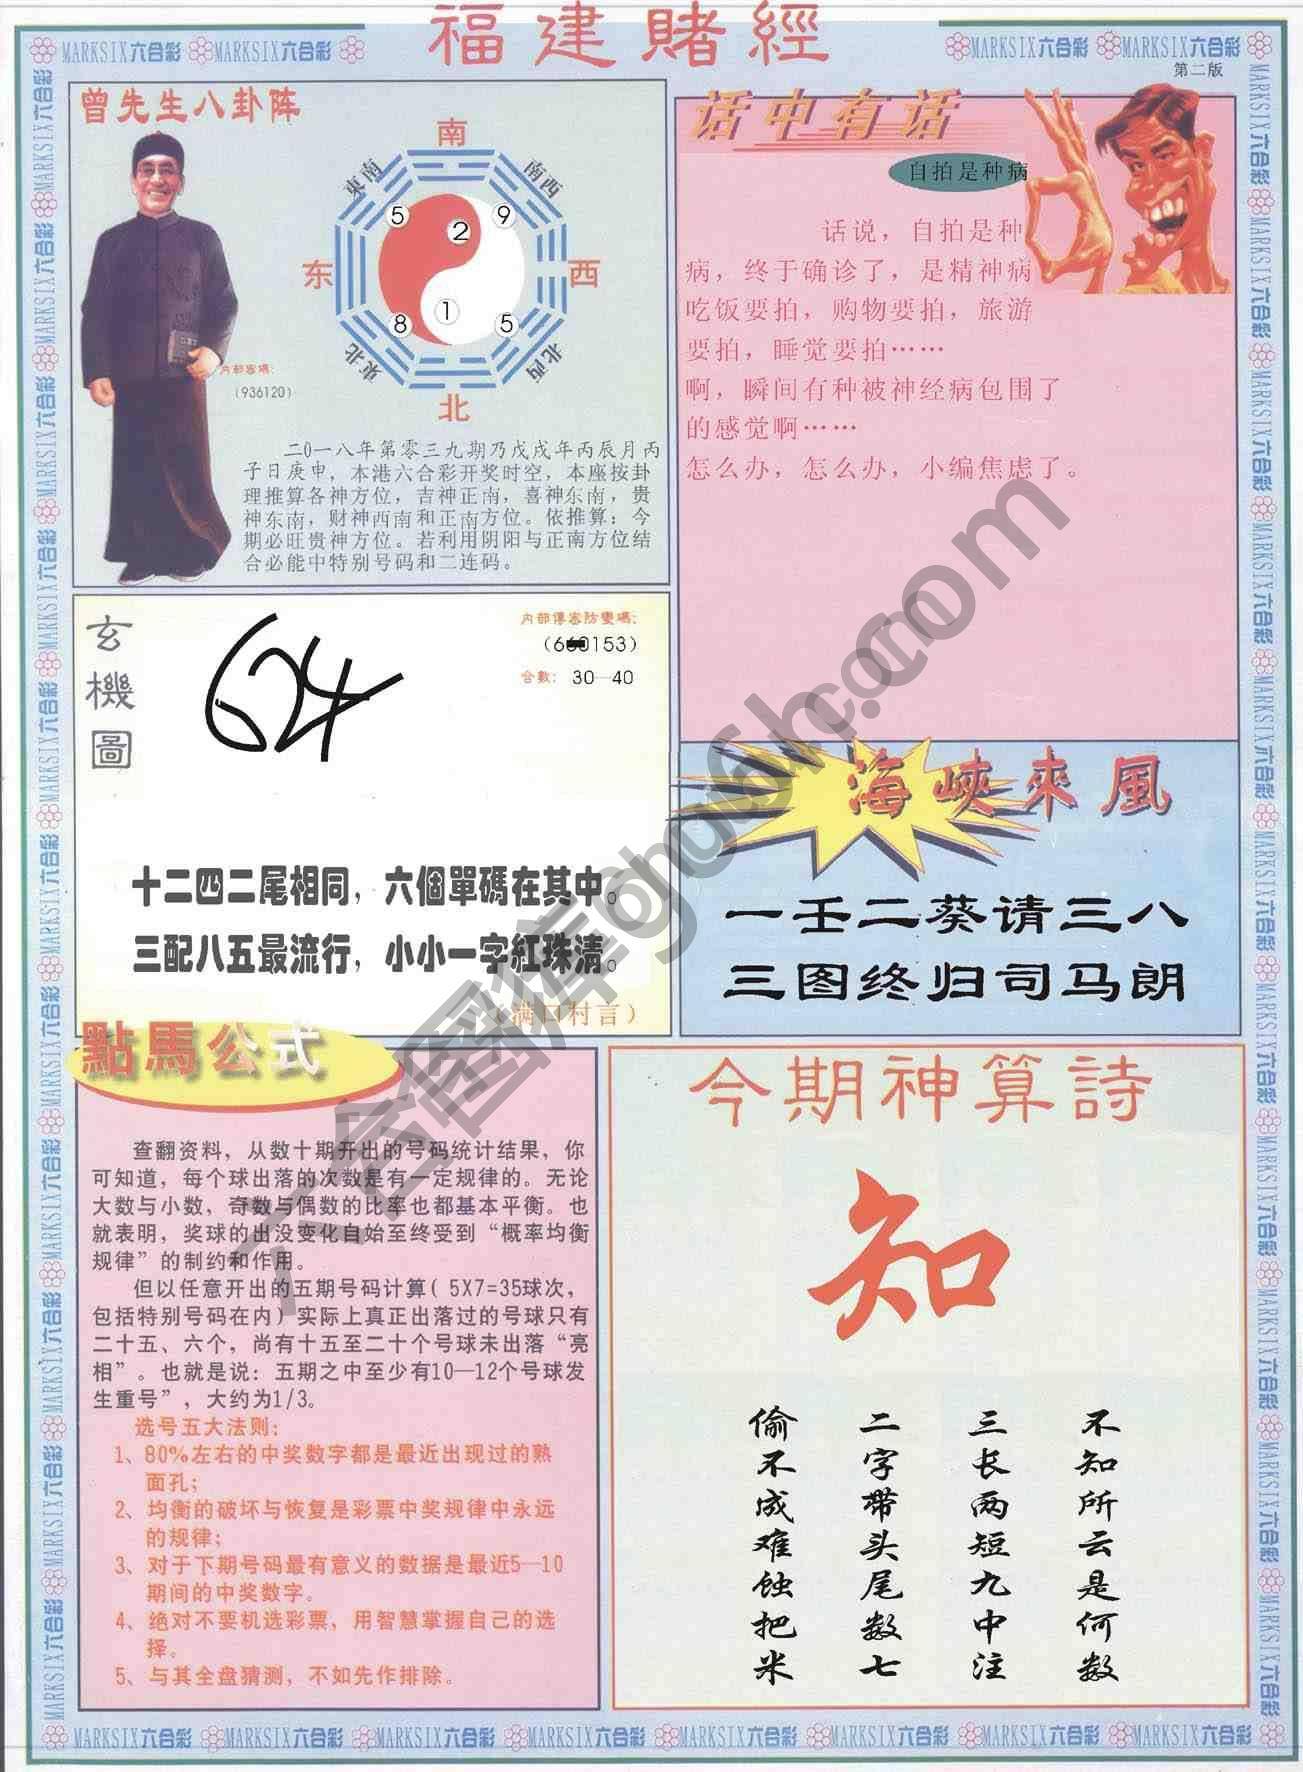 福建賭經
MARKSIX六合彩 MARKSIX六合彩
MARKSIX六合彩 MARKSIX六合彩
第二版
曾先生八卦阵
南
東南
南西
5
2
9
东
西
8
1
5
東北
北西
北
内部密碼：
(936120)
二0一八年第零三九期乃戊戌年丙辰月丙
子日庚申，本港六合彩开奖时空，本座按卦
理推算各神方位，吉神正南，喜神东南，贵
神东南，财神西南和正南方位。依推算：今
期必旺贵神方位。若利用阴阳与正南方位结
合必能中特别号码和二连码。
话中有话
自拍是种病
话说，自拍是种
病，终于确诊了，是精神病
吃饭要拍，购物要拍，旅游
要拍，睡觉要拍……
啊，瞬间有种被神经病包围了
的感觉啊……
怎么办，怎么办，小编焦虑了。
玄機圖
624
内部傳密防變碼：
(660153)
合數： 30—40
十二四二尾相同，六個單碼在其中。
三配八五最流行，小小一字紅珠清。
（满口村言）
海峽來風
一壬二葵请三八
三图终归司马朗
點馬公式
查翻资料，从数十期开出的号码统计结果，你
可知道，每个球出落的次数是有一定规律的。无论
大数与小数，奇数与偶数的比率也都基本平衡。也
就表明，奖球的出没变化自始至终受到“概率均衡
规律”的制约和作用。
但以任意开出的五期号码计算( 5X7=35球次，
包括特别号码在内）实际上真正出落过的号球只有
二十五、六个，尚有十五至二十个号球未出落“亮
相”。也就是说：五期之中至少有10—12个号球发
生重号”，大约为1/3。
选号五大法则：
1、80%左右的中奖数字都是最近出现过的熟
面孔；
2、均衡的破坏与恢复是彩票中奖规律中永远
的规律；
3、对于下期号码最有意义的数据是最近5—10
期间的中奖数字。
4、绝对不要机选彩票，用智慧掌握自己的选
择。
5、与其全盘猜测，不如先作排除。
今期神算詩
知
不知所云是何数
三长两短九中注
二字带头尾数七
偷不成难蚀把米
MARKSIX六合彩 MARKSIX六合彩 MARKSIX六合彩 MARKSIX六合彩 MARKSIX六合彩 MARKSIX六合彩 MARKSIX六合彩 MARKSIX六合彩